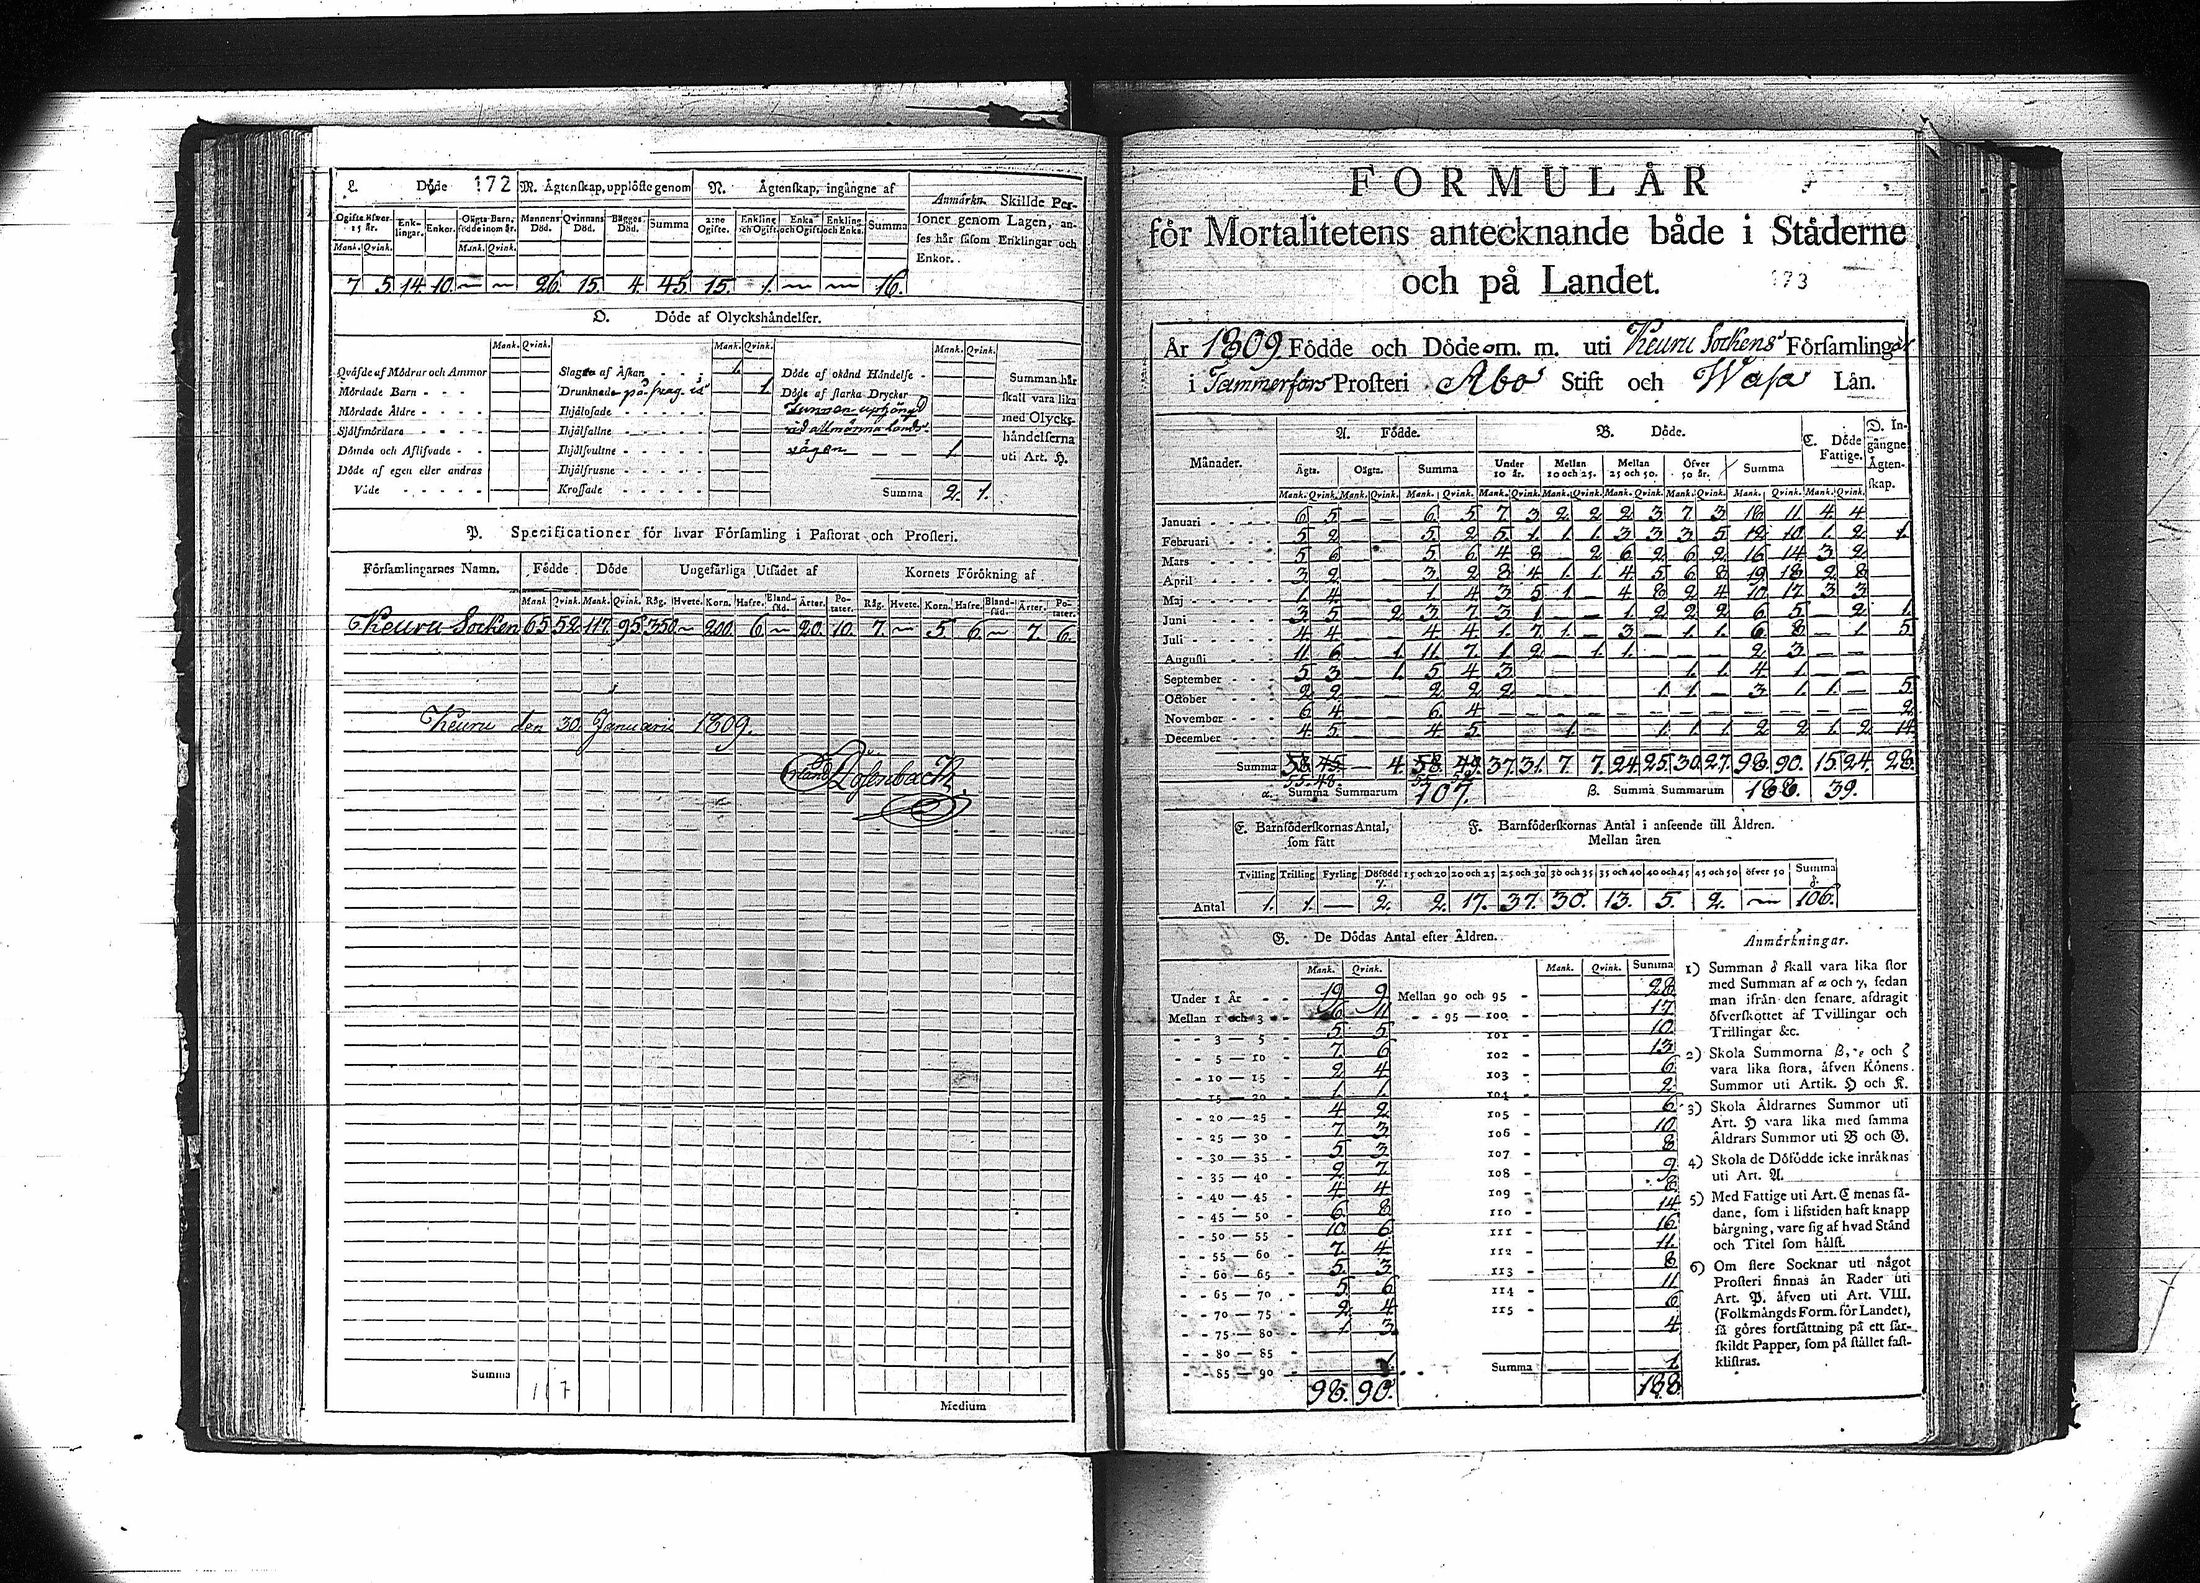 L. Döde 172 M. Ägtenskap, upplöste genom N. Ägtenskap, ingångne af Anmärkn. Skillde Per-
soner genom Lagen, an-
ses här såsom Enklingar och
Enkor.
Ogifte öfver 15 år. Enk-lingar. Enkor. Oägta Barn, födde inom år. Mannens Död. Qvinnans Död. Bägges Död. Summa 2:ne Ogifte. Enkling och Ogift. Enka och Ogift. Enkling och Enka. Summa
Mank. Qvink. Mank. Qvink.
7 5 14 10. — — 26. 15. 4. 45. 15. 1. — — 16.
O. Döde af Olyckshändelser.
Mank. Qvink. Mank. Qvink. Mank. Qvink.
Qväfde af Mödrar och Ammor Slagne af Åskan 1. Döde af okänd Händelse
Mördade Barn Drunknade på svag is 1. Döde af starka Drycker
Mördade Äldre Ihjälosade
Sjelfmördare Ihjälfallne vid allmänna lands-
Dömde och Aflifvade Ihjälsvultne vägen — — 1.
Döde af egen eller andras Ihjälfrusne
Våde Krossade Summa 2. 1.
Summan här
skall vara lika
med Olycks-
händelserna
uti Art. H.
P. Specificationer för hvar Församling i Pastorat och Prosteri.
Församlingarnes Namn. Födde Döde Ungefärliga Utsädet af Kornets Förökning af
Mank Qvink. Mank. Qvink. Råg. Hvete. Korn. Hafre. Bland-säd. Ärter. Po-tater. Råg. Hvete. Korn. Hafre. Bland-säd. Ärter. Po-tater.
Keuru Socken 65 52 117 95 350 — 200 6 — 20. 10. 7. — 5 6 — 7. 6.
Keuru den 30 Januarii 1809.
Summa 117
Medium
FORMULÄR
för Mortalitetens antecknande både i Städerne
och på Landet. 173
År 1809 Födde och Döde m. m. uti Keuru Sockens Församling
i Tammerfors Prosteri Åbo Stift och Wasa Län.
Månader. A. Födde. B. Döde. C. Döde Fattige. D. In-gångne Ägten-skap.
Ägta. Oägta. Summa Under 10 år. Mellan 10 och 25. Mellan 25 och 50. Öfver 50 år. Summa
Mank. Qvink. Mank. Qvink. Mank. Qvink. Mank. Qvink. Mank. Qvink. Mank. Qvink. Mank. Qvink. Mank. Qvink. Mank. Qvink.
Januari 6 5 — — 6 5 7 3 2 2 2 3 7 3 18 11 4 4
Februari 5 2 5 2 5 1 1 1 3 3 3 5 12 10 1 2 1.
Mars 5 6 5 6 4 8 — 2 6 2 6 2 16 14 3 2
April 3 2 3 2 8 4 1 1 4 5 6 8 19 18 2 8
Maj 1 4 1 4 3 5 1 — 4 8 2 4 10 17 3 3
Juni 3 5 2 3 7 3 1 — — 1 2 2 2 6 5 — 2 1
Juli 4 4 4 4 1 7 1 — 3 — 1 1 6 8 — 1 5
Augusti 11 6 — 1 11 7 1 2 — 1 1 — — — 2 3 — —
September 5 3 1 5 4 3 1 1 4 1 —
October 2 2 2 2 2 1 1 — 3 1 1 — 5
November 6 4 6 4 — — — — — — — — — — — — 2
December 4 5 4 5 1 1 1 1 2 2 1 2 14
Summa 58 45 — 4 58 49 37 31 7 7 24 25 30 27 98 90 15 24 28
55 48
α. Summa Summarum 107. β. Summa Summarum 188. 39.
E. Barnföderskornas Antal, som fått F. Barnföderskornas Antal i anseende till Åldren.
Mellan åren
Tvilling Trilling Fyrling Dödfödd γ. 15 och 20 20 och 25 25 och 30 30 och 35 35 och 40 40 och 45 45 och 50 öfver 50 Summa δ.
Antal 1. 1. — 2. 2. 17. 37. 30. 13. 5. 2. — 106.
G. De Dödas Antal efter Åldren.
Mank. Qvink. Mank. Qvink. Summa
Under 1 År 19 9 Mellan 90 och 95 28
Mellan 1 och 3 6 11 95 — 100 17
3 — 5 5 5 101 10
5 — 10 7 6 102 13
10 — 15 2 4 103 6
15 — 20 1 1 104 2
20 — 25 4 2 105 6
25 — 30 7 3 106 10
30 — 35 5 3 107 8
35 — 40 2 7 108 9
40 — 45 4 4 109 8
45 — 50 6 8 110 14
50 — 55 10 6 111 16
55 — 60 7 4 112 11
60 — 65 5 3 113 8
65 — 70 5 6 114 11
70 — 75 2 4 115 6
75 — 80 1 3 4
80 — 85
85 — 90 1 Summa 1
98. 90. 188
Anmärkningar.
1) Summan δ skall vara lika stor
med Summan af α och γ, sedan
man ifrån den senare afdragit
öfverskottet af Tvillingar och
Trillingar &c.
2) Skola Summorna β, ε och ζ
vara lika stora, äfven Könens
Summor uti Artik. H och K.
3) Skola Åldrarnes Summor uti
Art. H vara lika med samma
Åldrars Summor uti B och G.
4) Skola de Dödfödde icke inräknas
uti Art. A.
5) Med Fattige uti Art. C menas så-
dane, som i lifstiden haft knapp
bärgning, vare sig af hvad Stånd
och Titel som hälst.
6) Om flere Socknar uti något
Prosteri finnas än Rader uti
Art. P. äfven uti Art. VIII.
(Folkmängds Form. för Landet),
så göres fortsättning på ett sär-
skildt Papper, som på stället fast-
klistras.